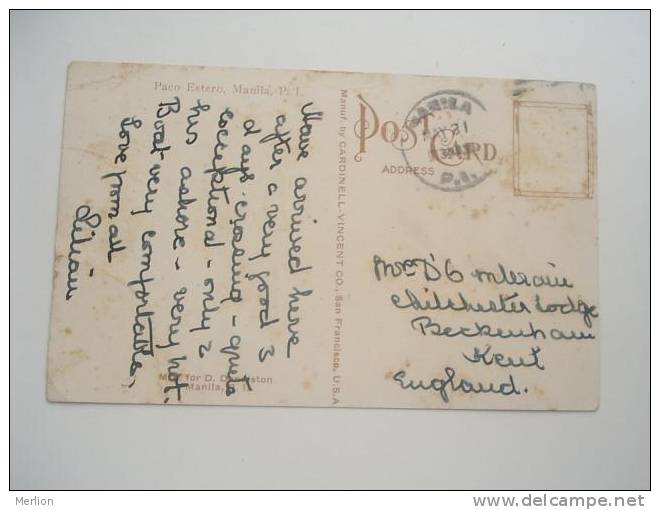 Paco Estero, Manila, P. I.
Have arrived here
after a very good 3
days crossing - quite
exceptional - only 2
hrs ashore - very hot.
Boat very comfortable.
Love from all
Lilian
Manuf. by CARDINELL-VINCENT CO., San Francisco, U.S.A.
POST CARD
ADDRESS
MANILA
31
P.I.
Chilchester Lodge
Beckenham
Kent
England.
for D.
Manila,
Merlion
www.delcampe.net